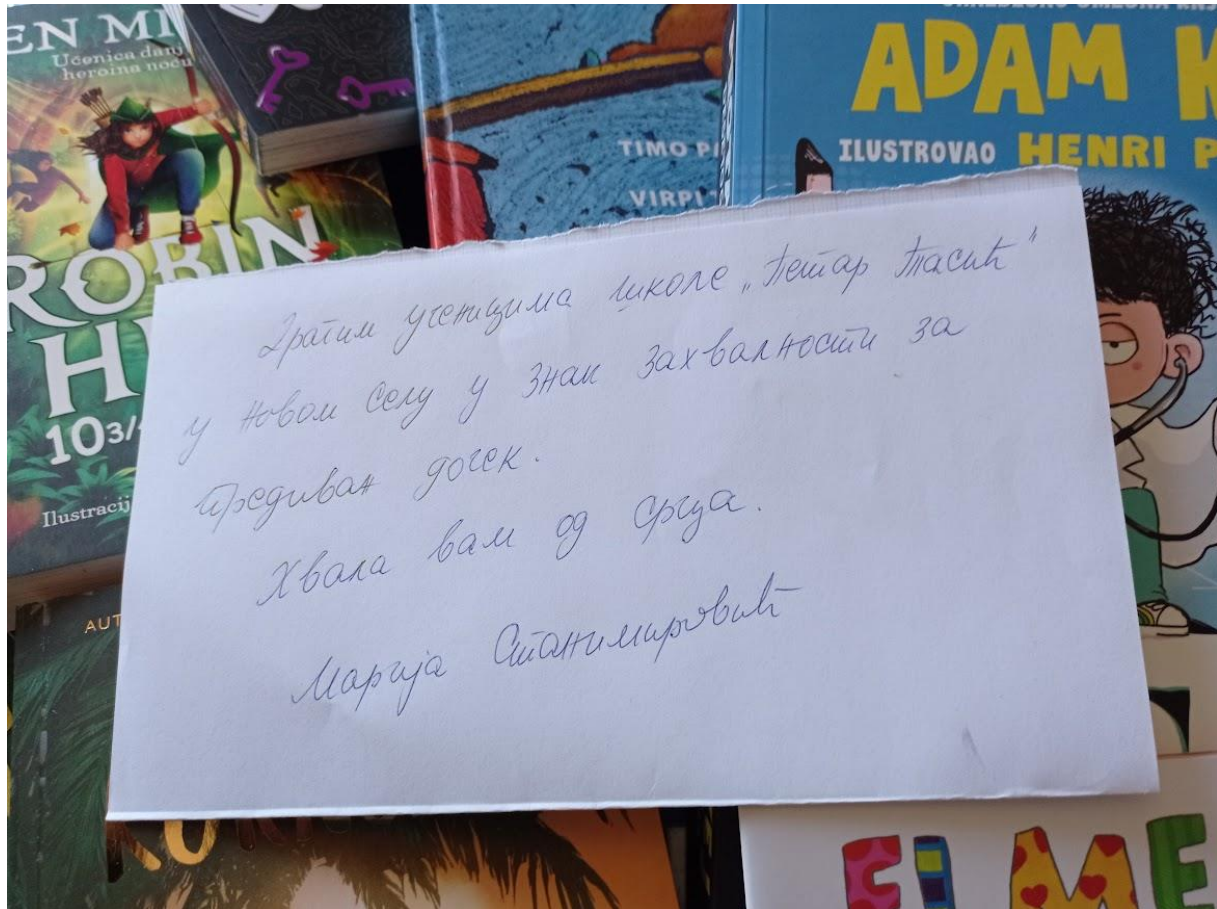 EN MI
Učenica danj
heroina noću
ROBIN
H
10 3/4
Ilustracij
TIMO P
VIRPI
ADAM K
ILUSTROVAO HENRI P
Драгим ученицима школе „Петар Тасић"
у Новом Селу у знак захвалности за
предиван дочек.
Хвала вам од срца.
Марија Станимировић
AUT
ELME